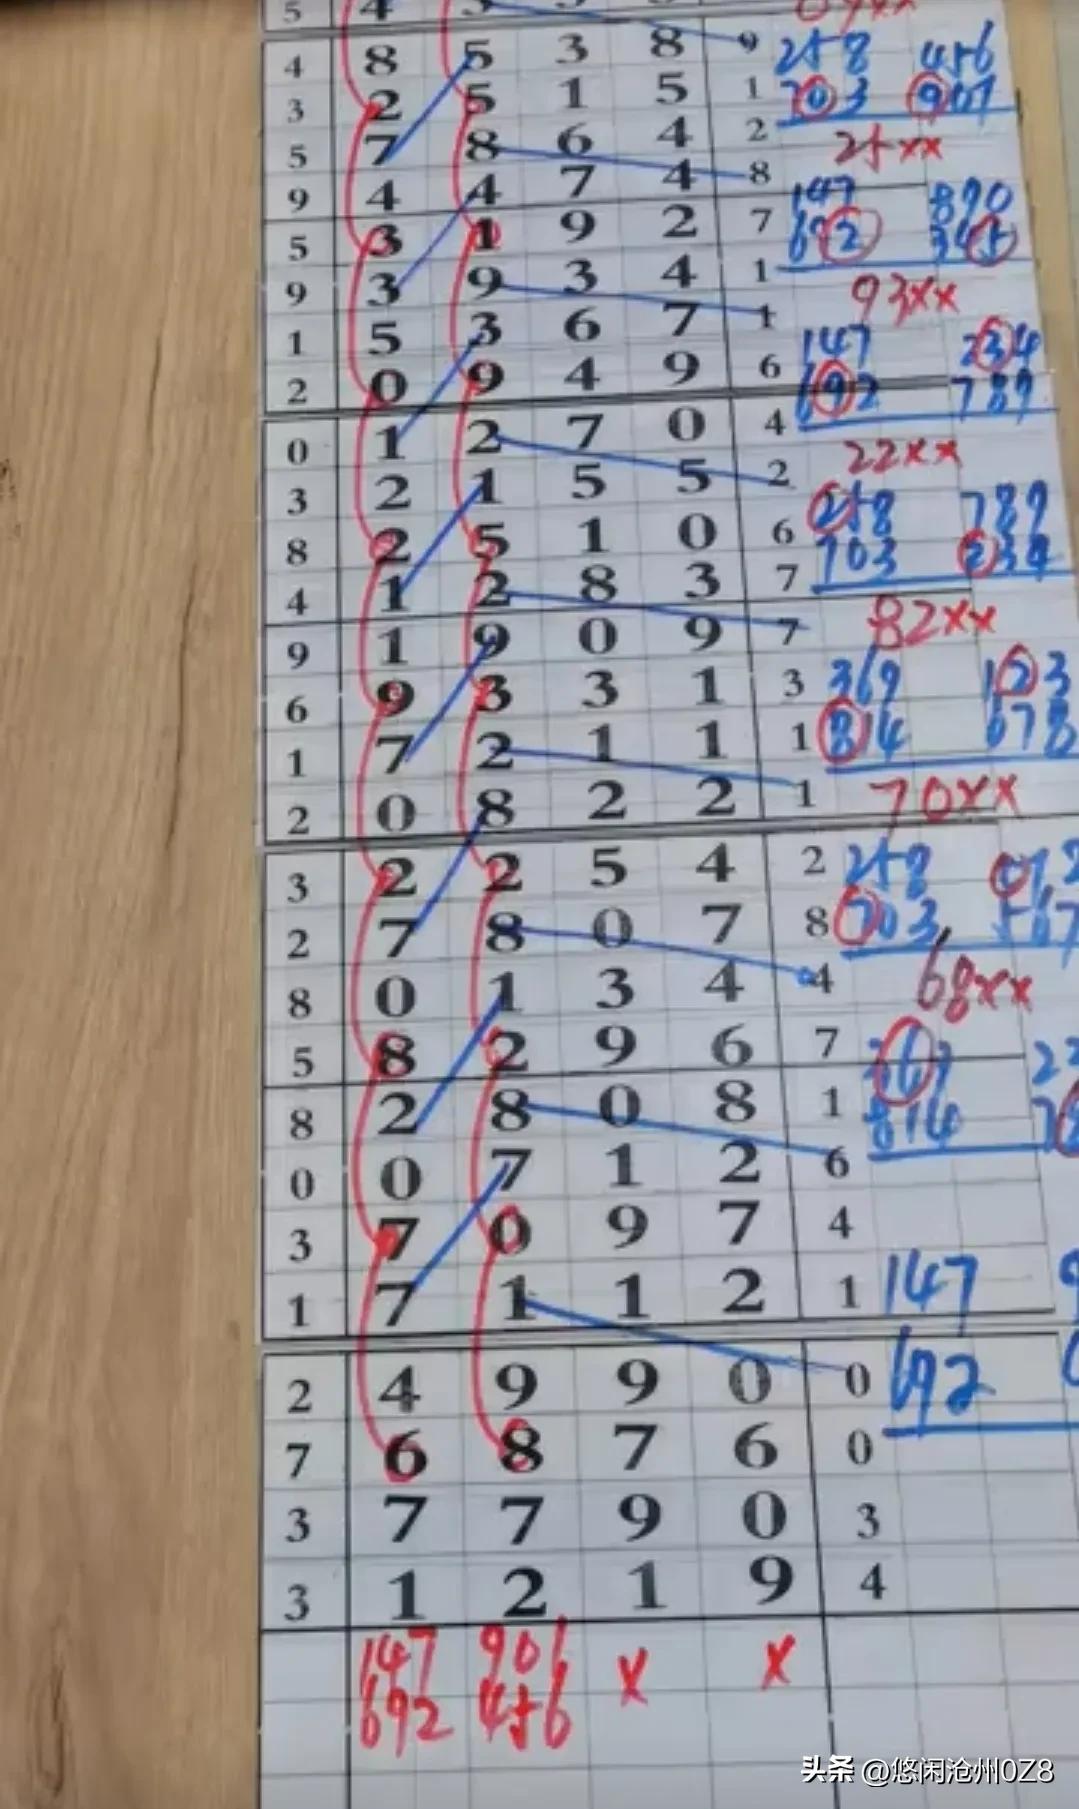 5 4
4 8 5 3 8 9 258 456
3 2 5 1 5 1 703 901
5 7 8 6 4 2 25xx
9 4 4 7 4 8 147 890
5 3 1 9 2 7 692 345
9 3 9 3 4 1 93xx
1 5 3 6 7 1 147 234
2 0 9 4 9 6 692 789
0 1 2 7 0 4 22xx
3 2 1 5 5 2 258 789
8 2 5 1 0 6 703 234
4 1 2 8 3 7 82xx
9 1 9 0 9 7 369 123
6 9 3 3 1 3 814 678
1 7 2 1 1 1
2 0 8 2 2 1 70xx
3 2 2 5 4 2 258
2 7 8 0 7 8 703 567
8 0 1 3 4 4 68xx
5 8 2 9 6 7
8 2 8 0 8 1 814
0 0 7 1 2 6
3 7 0 9 7 4
1 7 1 1 2 1 147
2 4 9 9 0 0 692
7 6 8 7 6 0
3 7 7 9 0 3
3 1 2 1 9 4
147 901 x x
692 456
头条 @悠闲沧州0Z8